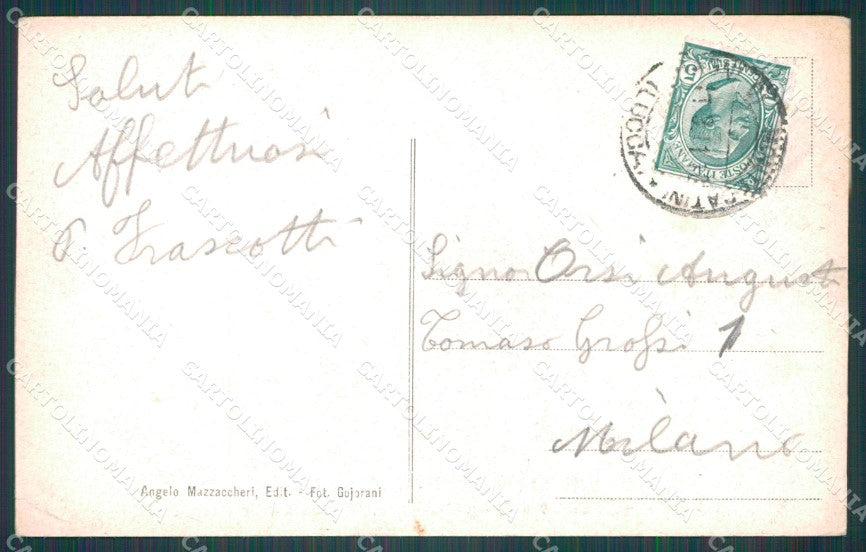 Saluti
Affettuosi
G. Frascotti
Signor Orsi Augusto
Tomaso Grossi 1
Milano
Angelo Mazzaccheri, Edit. - Fot. Gujorani
POSTE ITALIANE
5
(LUCCA)
CARTOLINOMANIA